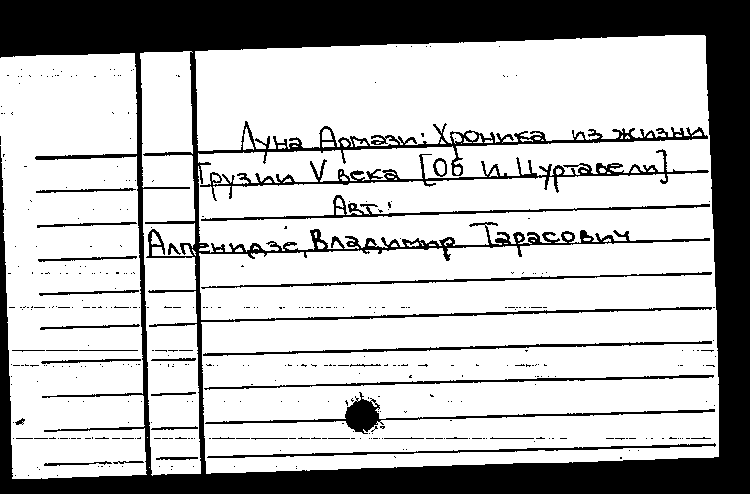 Луна Армази: Хроника из жизни
Грузии V века [Об И. Цуртавели].
Авт.:
Алпенидзе, Владимир Тарасович